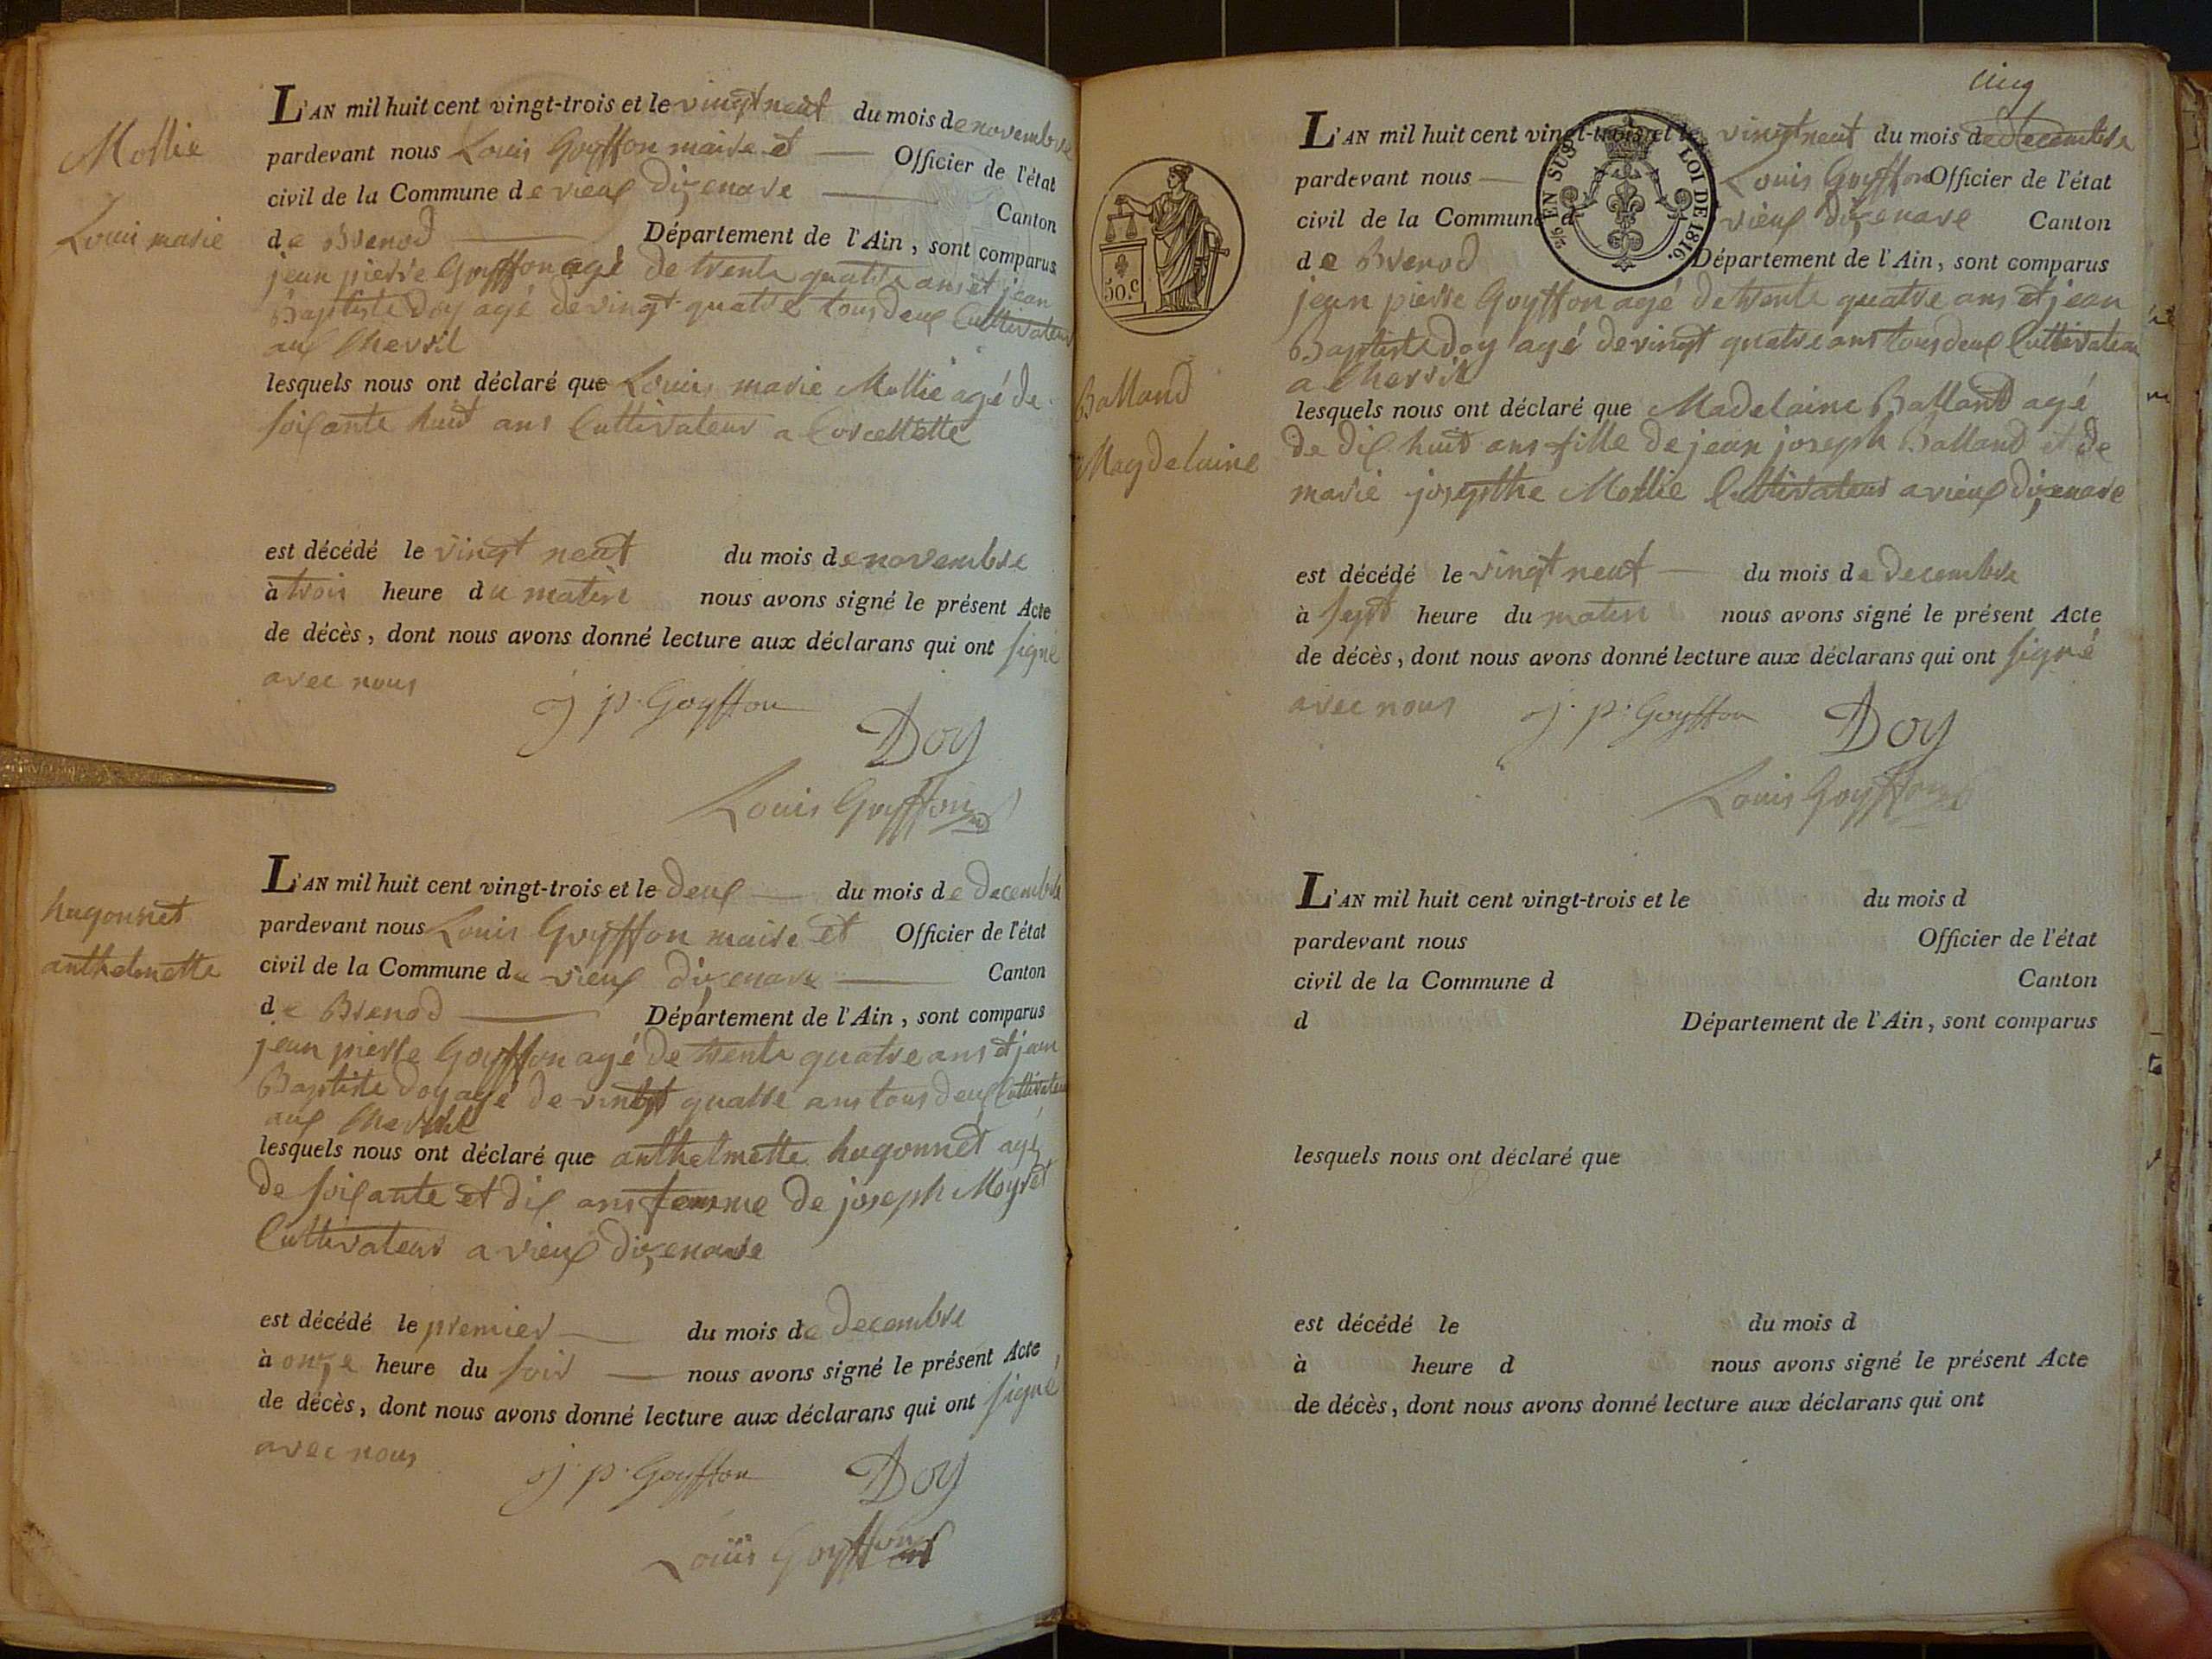 Mollie
Louis marie
L'AN mil huit cent vingt-trois et le vingt neuf du mois de novembre
pardevant nous Louis Goyffon maire et Officier de l'état
civil de la Commune de vieux dizenave Canton
de Brenod Département de l'Ain, sont comparus
jean pierre Goyffon agé de trente quatre ans et jean
Baptiste Doy agé de vingt quatre tous deux Cultivateur
aux Chevril
lesquels nous ont déclaré que Louis marie Mollie agé de
soixante huit ans Cultivateur a Corcellette
est décédé le vingt neuf du mois de novembre
à trois heure du matin nous avons signé le présent Acte
de décès, dont nous avons donné lecture aux déclarans qui ont signé
avec nous
j p. Goyffon
Doy
Louis Goyffon
hugonnet
anthelmette
L'AN mil huit cent vingt-trois et le deux du mois de decembre
pardevant nous Louis Goyffon maire et Officier de l'état
civil de la Commune de vieux dizenave Canton
de Brenod Département de l'Ain, sont comparus
jean pierre Goyffon agé de trente quatre ans et jean
Baptiste Doy agé de vingt quatre ans tous deux Cultivateur
aux
lesquels nous ont déclaré que anthelmette hugonnet agé
de soixante et dix ans femme de joseph Moyret
Cultivateur a vieux dizenave
est décédé le premier du mois de decembre
à onze heure du soir nous avons signé le présent Acte
de décès, dont nous avons donné lecture aux déclarans qui ont signé
avec nous
j. p. Goyffon Doy
Louis Goyffon
cinq
50.c
EN SUS LOI DE 1816.
Balland
Magdelaine
L'AN mil huit cent vingt-trois et le vingt neuf du mois de decembre
pardevant nous Louis Goyffon Officier de l'état
civil de la Commune d vieux dizenave Canton
de Brenod Département de l'Ain, sont comparus
jean pierre Goyffon agé de trente quatre ans et jean
Baptiste Doy agé de vingt quatre ans tous deux Cultivateur
a Chevril
lesquels nous ont déclaré que Madelaine Balland agé
de dix huit ans fille de jean joseph Balland et de
marie josephte Mollie Cultivateur a vieux dizenave
est décédé le vingt neuf du mois de decembre
à sept heure du matin nous avons signé le présent Acte
de décès, dont nous avons donné lecture aux déclarans qui ont signé
avec nous j. p. Goyffon Doy
Louis Goyffon
L'AN mil huit cent vingt-trois et le du mois d
pardevant nous Officier de l'état
civil de la Commune d Canton
d Département de l'Ain, sont comparus
lesquels nous ont déclaré que
est décédé le du mois d
à heure d nous avons signé le présent Acte
de décès, dont nous avons donné lecture aux déclarans qui ont